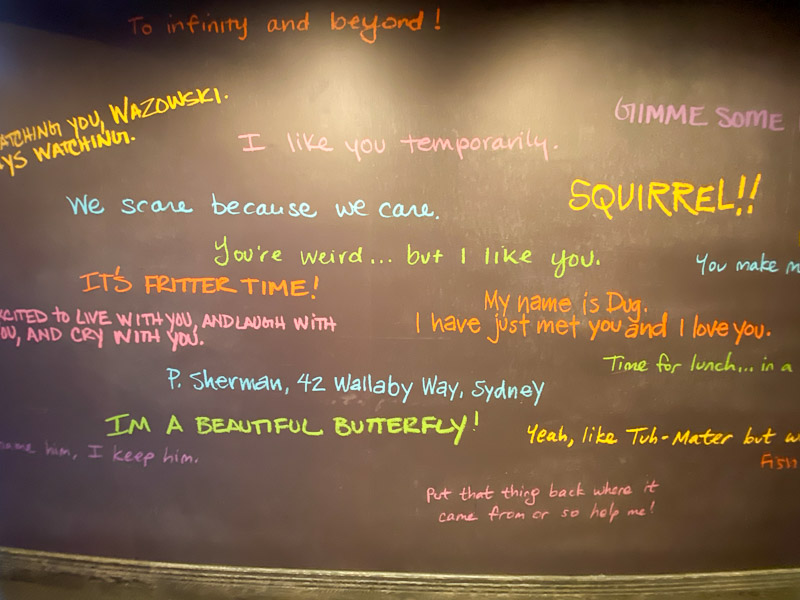 To infinity and beyond!
ATCHING YOU, WAZOWSKI.
YS WATCHING.
GIMME SOME
I like you temporarily.
SQUIRREL!!
We scare because we care.
You're weird... but I like you.
You make m
IT'S FRITTER TIME!
My name is Dug.
I have just met you and I love you.
CITED TO LIVE WITH YOU, AND LAUGH WITH
OU, AND CRY WITH YOU.
Time for lunch... in a
P. Sherman, 42 Wallaby Way, Sydney
IM A BEAUTIFUL BUTTERFLY!
Yeah, like Tuh-Mater but w
name him, I keep him.
FISH
Put that thing back where it
came from or so help me!